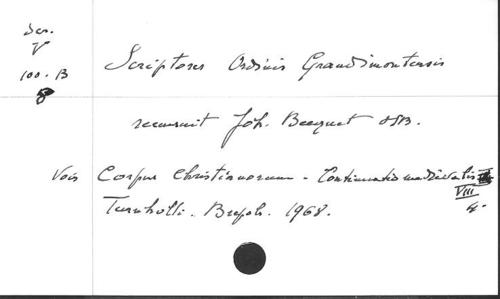 Scr.
V
100.B
8
Scriptores Ordinis Grandimontensis
recensuit Joh. Becquet OSB.
Vois Corpus Christianorum - Continuatio mediævalis
VIII
4.
Turnholti. Brepols. 1968.